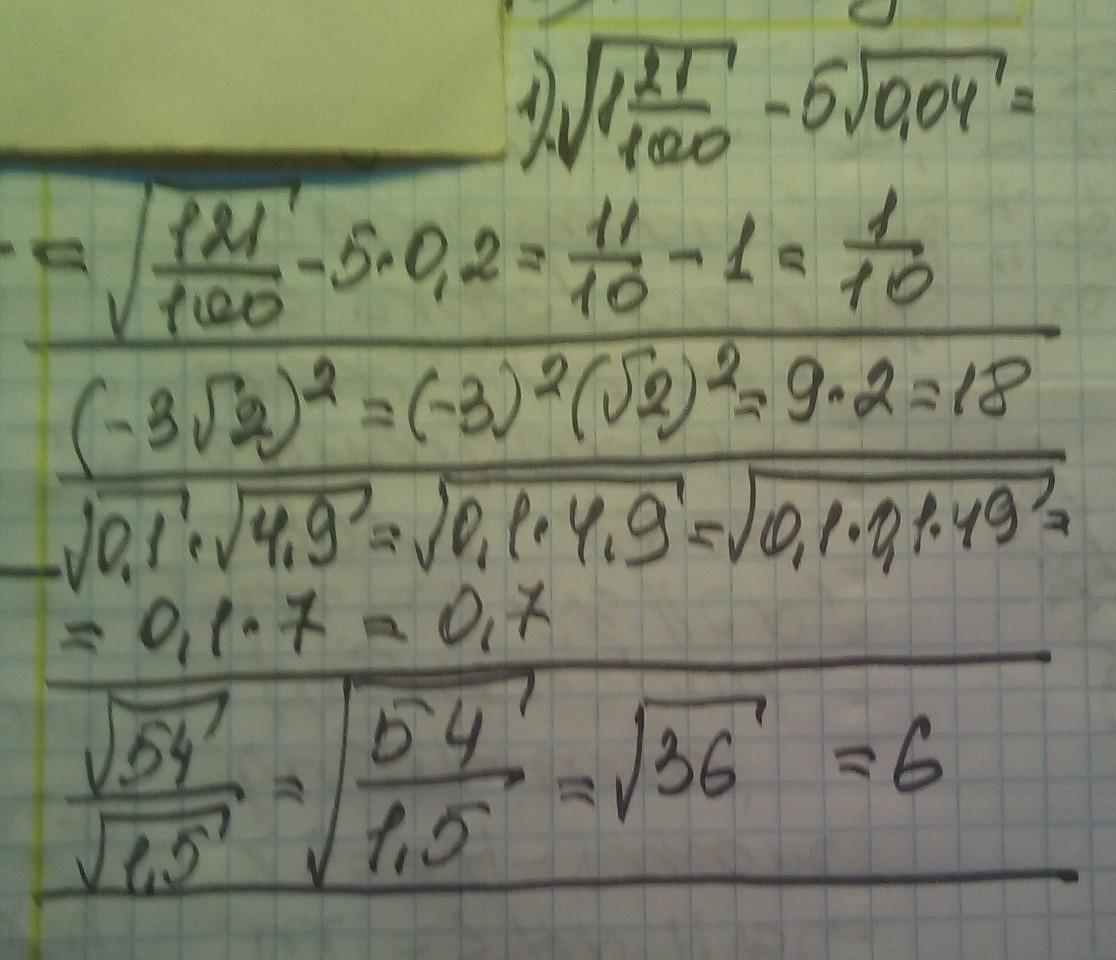 1) √(1 21/100) - 5√0,04 =
= √(121/100) - 5·0,2 = 11/10 - 1 = 1/10
(-3√2)² = (-3)²(√2)² = 9·2 = 18
√0,1·√4,9 = √(0,1·4,9) = √(0,1·0,1·49) =
= 0,1·7 = 0,7
√54/√1,5 = √(54/1,5) = √36 = 6